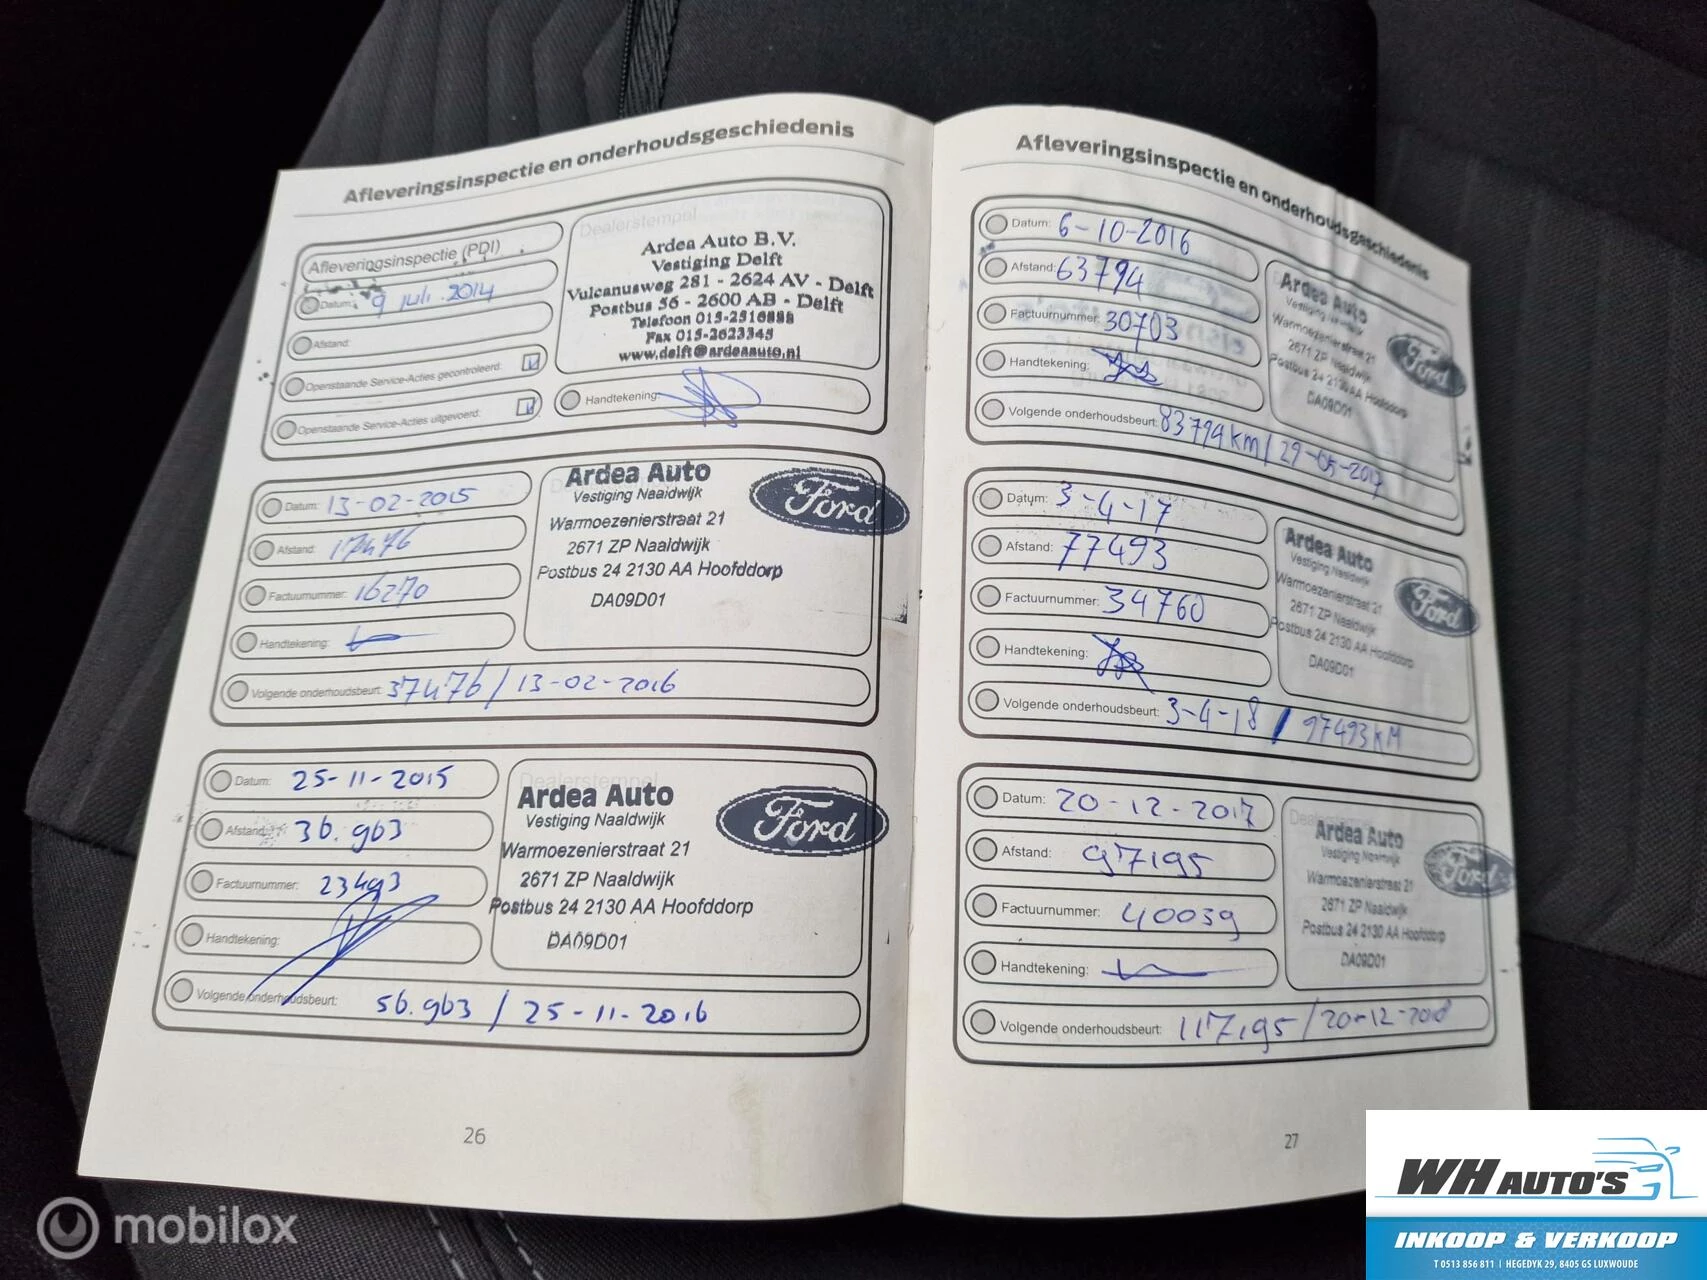 Afleveringsinspectie en onderhoudsgeschiedenis
Afleveringsinspectie (PDI)
Datum: 9 juli 2014
Afstand:
Openstaande Service-Acties gecontroleerd:
Openstaande Service-Acties uitgevoerd:
Dealerstempel
Ardea Auto B.V.
Vestiging Delft
Vulcanusweg 281 - 2624 AV - Delft
Postbus 56 - 2600 AB - Delft
Telefoon 015-2516888
Fax 015-2623345
www.delft@ardeaauto.nl
Handtekening:
Datum: 13-02-2015
Afstand: 17476
Factuurnummer: 16270
Handtekening:
Volgende onderhoudsbeurt: 37476 / 13-02-2016
Ardea Auto
Vestiging Naaldwijk
Warmoezenierstraat 21
2671 ZP Naaldwijk
Postbus 24 2130 AA Hoofddorp
DA09D01
Ford
Datum: 25-11-2015
Afstand: 36.963
Factuurnummer: 23493
Handtekening:
Volgende onderhoudsbeurt: 56.963 / 25-11-2016
Dealerstempel
Ardea Auto
Vestiging Naaldwijk
Warmoezenierstraat 21
2671 ZP Naaldwijk
Postbus 24 2130 AA Hoofddorp
DA09D01
Ford
26
Afleveringsinspectie en onderhoudsgeschiedenis
Datum: 6-10-2016
Afstand: 63794
Factuurnummer: 30703
Handtekening:
Volgende onderhoudsbeurt: 83794 km / 29-05-2017
Ardea Auto
Vestiging Naaldwijk
Warmoezenierstraat 21
2671 ZP Naaldwijk
Postbus 24 2130 AA Hoofddorp
DA09D01
Ford
Datum: 3-4-17
Afstand: 77493
Factuurnummer: 34760
Handtekening:
Volgende onderhoudsbeurt: 3-4-18 / 97493 KM
Ardea Auto
Vestiging Naaldwijk
Warmoezenierstraat 21
2671 ZP Naaldwijk
Postbus 24 2130 AA Hoofddorp
DA09D01
Ford
Datum: 20-12-2017
Afstand: 97195
Factuurnummer: 40039
Handtekening:
Volgende onderhoudsbeurt: 117195 / 20-12-2018
Ardea Auto
Vestiging Naaldwijk
Warmoezenierstraat 21
2671 ZP Naaldwijk
Postbus 24 2130 AA Hoofddorp
DA09D01
Ford
27
mobilox
WH AUTO'S
INKOOP & VERKOOP
T 0513 856 811 | HEGEDYK 29, 8405 GS LUXWOUDE